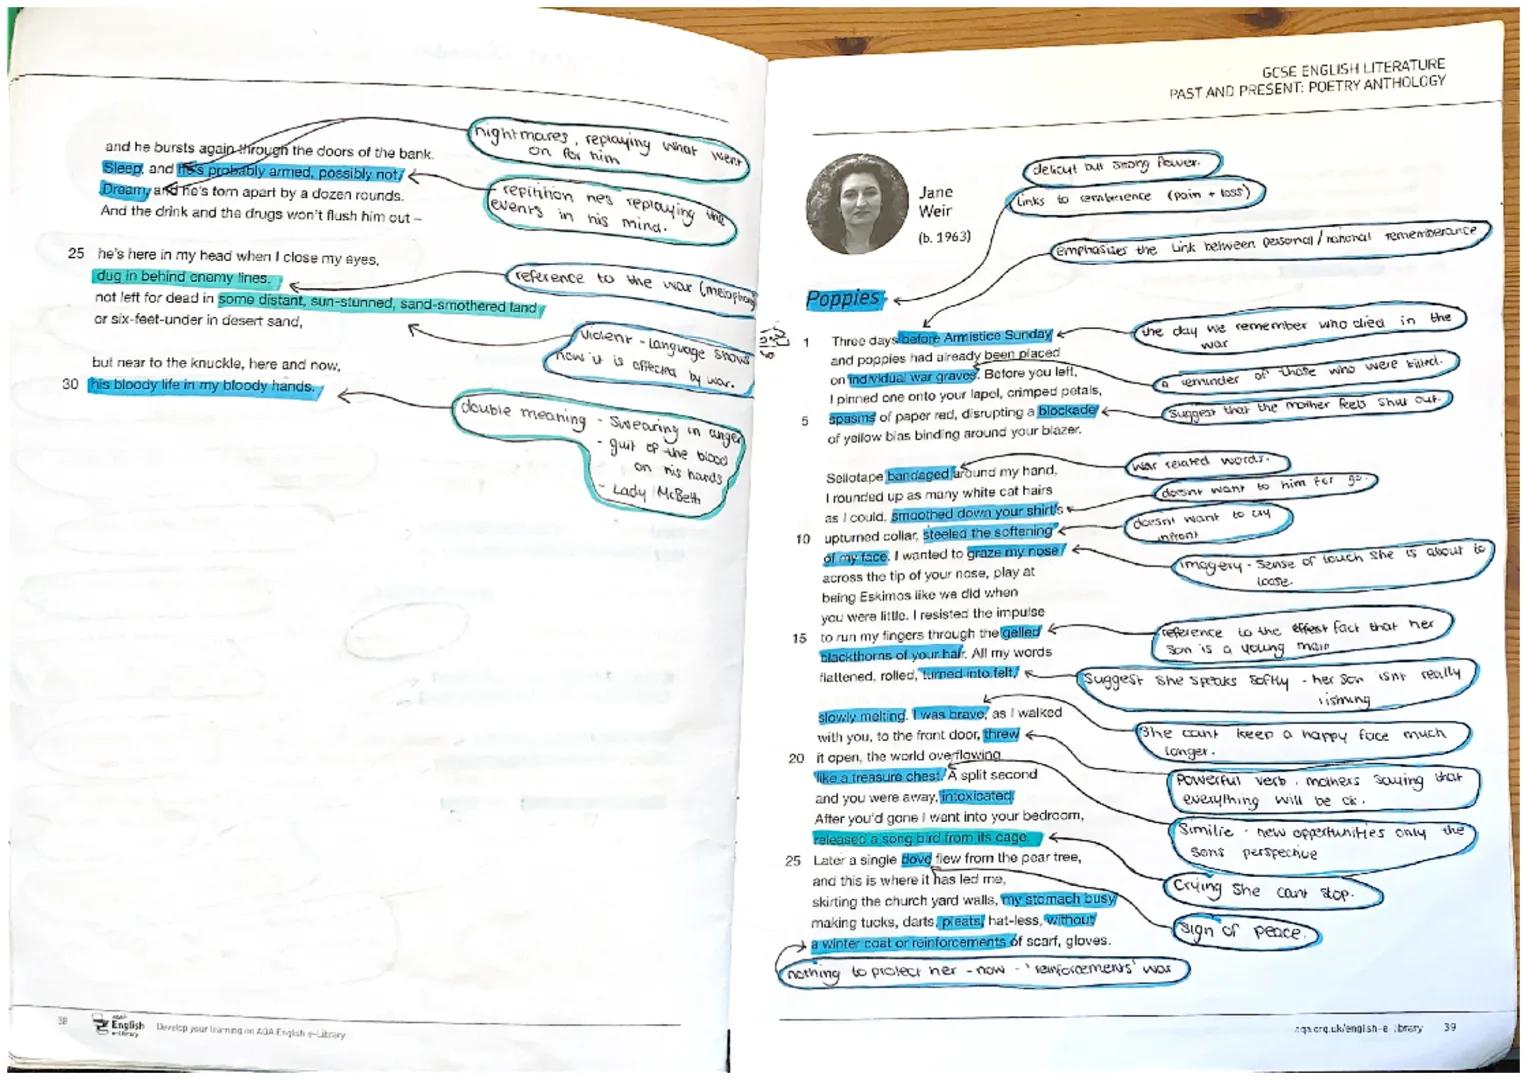 and he bursts again through the doors of the bank.
Sleep, and he's probably armed, possibly not.
Dream, and he's torn apart by a dozen rounds.
And the drink and the drugs won't flush him out –
25 he's here in my head when I close my eyes,
dug in behind enemy lines,
not left for dead in some distant, sun-stunned, sand-smothered land
or six-feet-under in desert sand,
but near to the knuckle, here and now,
30 his bloody life in my bloody hands.
nightmares, replaying what went
on for him
repitition hes replaying the
events in his mind.
reference to the war (metaphor
violent - language shows
how it is affected by war.
double meaning - swearing in anger
- guit of the blood
on his hands
- Lady McBeth
38
AQA
English
e-Library
Develop your learning on AQA English e-Library
GCSE ENGLISH LITERATURE
PAST AND PRESENT: POETRY ANTHOLOGY
Jane
Weir
(b. 1963)
delicut but strong flower.
links to rememberence (pain + loss)
emphasises the link between personal / national rememberance
Poppies
1 Three days before Armistice Sunday
and poppies had already been placed
on individual war graves. Before you left,
I pinned one onto your lapel, crimped petals,
5 spasms of paper red, disrupting a blockade
of yellow bias binding around your blazer.
Sellotape bandaged around my hand,
I rounded up as many white cat hairs
as I could, smoothed down your shirt's
10 upturned collar, steeled the softening
of my face. I wanted to graze my nose
across the tip of your nose, play at
being Eskimos like we did when
you were little. I resisted the impulse
15 to run my fingers through the gelled
blackthorns of your hair. All my words
flattened, rolled, turned into felt,
slowly melting. I was brave, as I walked
with you, to the front door, threw
20 it open, the world overflowing
like a treasure chest. A split second
and you were away, intoxicated.
After you'd gone I went into your bedroom,
released a song bird from its cage.
25 Later a single dove flew from the pear tree,
and this is where it has led me,
skirting the church yard walls, my stomach busy
making tucks, darts, pleats, hat-less, without
a winter coat or reinforcements of scarf, gloves.
the day we remember who died in the
war
a reminder of those who were killed.
Suggest that the mother feels shut out.
war related words.
doesnt want to him for go.
doesnt want to cry
infront
imagery - Sense of touch she is about to
loose.
reference to the effest fact that her
son is a young man
Suggest she speaks softly - her son isnt really
lisning
She cant keep a happy face much
longer.
Powerful verb, mothers saying that
everything will be ok.
Similie - new oppertunities only the
sons perspective
Crying she cant stop.
sign of peace.
nothing to protect her - now - 'reinforcements' war
aqa.org.uk/english-e-library 39